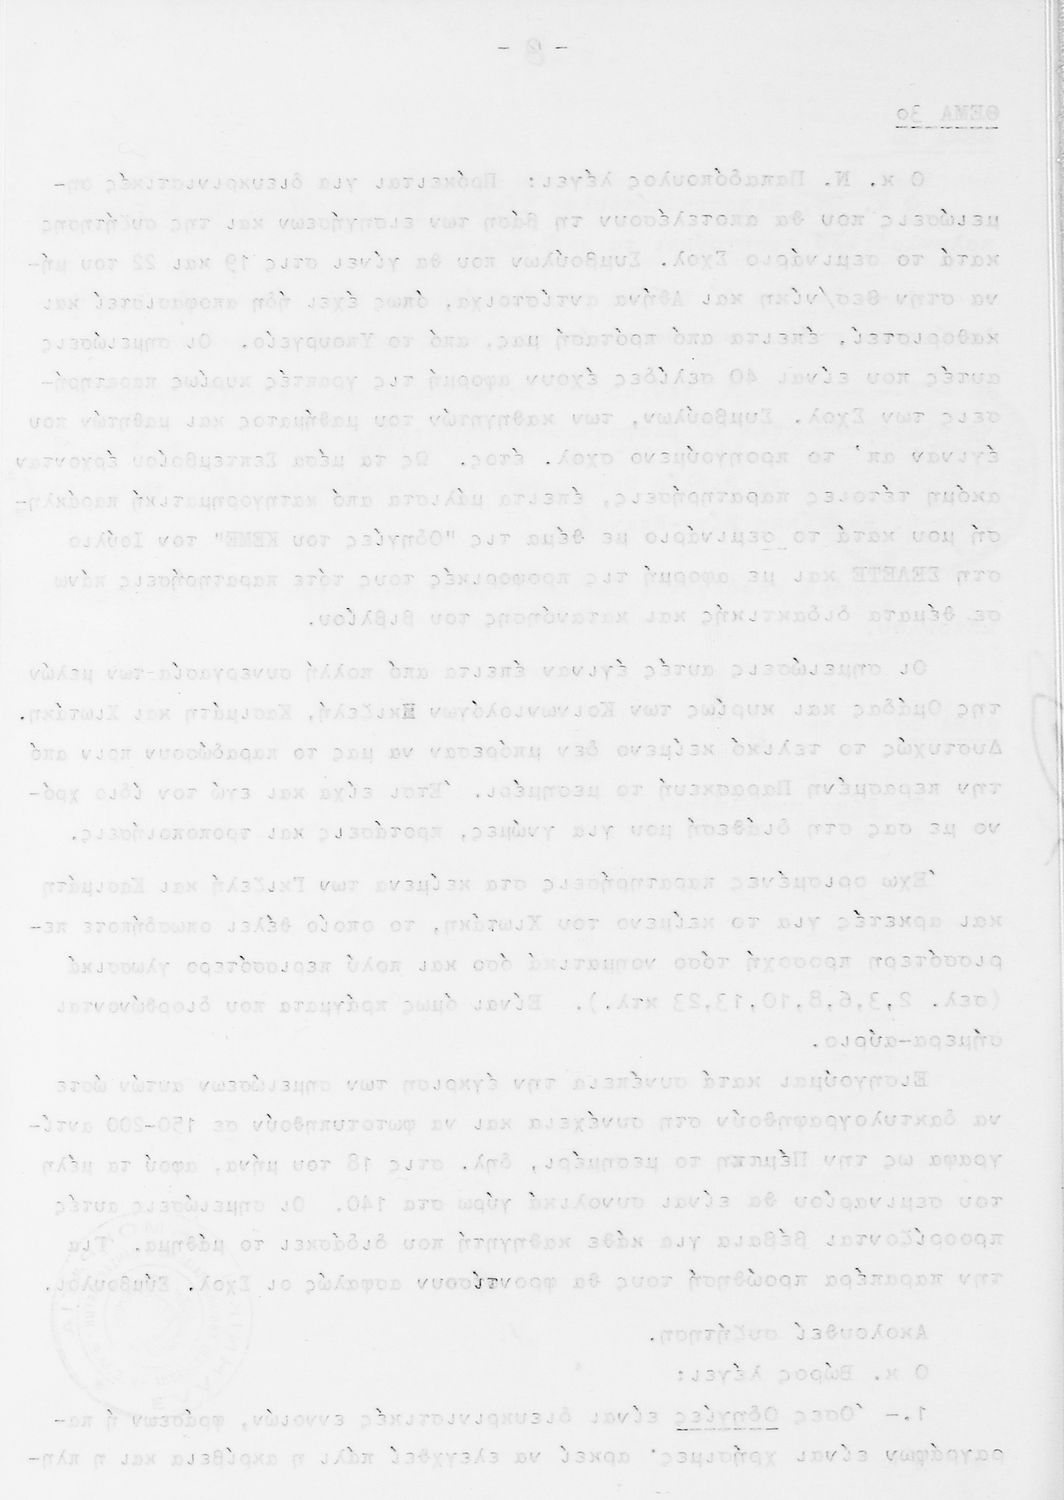 - 8 -
ΘΕΜΑ 3ο
Ο κ. Ν. Παπαδόπουλος λέγει: Πρόκειται για διευκρινιστικές ση-
μειώσεις που θα αποτελέσουν τη βάση των εισηγήσεων και της συζήτησης
κατά το σεμινάριο Σχολ. Συμβούλων που θα γίνει στις 19 και 22 του μή-
να στην Θεσ/νίκη και Αθήνα αντίστοιχα, όπως έχει ήδη αποφασιστεί και
καθοριστεί, έπειτα από πρόταση μας, από το Υπουργείο. Οι σημειώσεις
αυτές που είναι 40 σελίδες έχουν αφορμή τις γραπτές κυρίως παρατηρή-
σεις των Σχολ. Συμβούλων, των καθηγητών του μαθήματος και μαθητών που
έγιναν απ' το προηγούμενο σχολ. έτος. Ως τα μέσα Σεπτεμβρίου έρχονταν
ακόμη τέτοιες παρατηρήσεις, έπειτα μάλιστα από κατηγορηματική παράκλη-
ση μου κατά το σεμινάριο με θέμα τις "Οδηγίες του ΚΕΜΕ" τον Ιούλιο
στη ΣΕΛΕΤΕ και με αφορμή τις προφορικές τους τότε παρατηρήσεις πάνω
σε θέματα διδακτικής και κατανόησης του βιβλίου.
Οι σημειώσεις αυτές έγιναν έπειτα από πολλή συνεργασία των μελών
της Ομάδας και κυρίως των Κοινωνιολόγων Γκιζελή, Κασιμάτη και Χιωτάκη.
Δυστυχώς το τελικό κείμενο δεν μπόρεσαν να μας το παραδώσουν πριν από
την περασμένη Παρασκευή το μεσημέρι. Έτσι είχα και εγώ τον ίδιο χρό-
νο με σας στη διάθεσή μου για γνώμες, προτάσεις και τροποποιήσεις.
Έχω ορισμένες παρατηρήσεις στα κείμενα των Γκιζελή και Κασιμάτη
και αρκετές για το κείμενο του Χιωτάκη, το οποίο θέλει οπωσδήποτε πε-
ρισσότερη προσοχή τόσο νοηματικά όσο και πολύ περισσότερο γλωσσικά
(σελ. 2,3,6,8,10,13,23 κτλ.). Είναι όμως πράγματα που διορθώνονται
σήμερα-αύριο.
Εισηγούμαι κατά συνέπεια την έγκριση των σημειώσεων αυτών ώστε
να δακτυλογραφηθούν στη συνέχεια και να φωτοτυπηθούν σε 150-200 αντί-
γραφα ως την Πέμπτη το μεσημέρι, δηλ. στις 18 του μήνα, αφού τα μέλη
του σεμιναρίου θα είναι συνολικά γύρω στα 140. Οι σημειώσεις αυτές
προορίζονται βέβαια για κάθε καθηγητή που διδάσκει το μάθημα. Για
την παραπέρα προώθησή τους θα φροντίσουν ασφαλώς οι Σχολ. Σύμβουλοι.
Ακολουθεί συζήτηση.
Ο κ. Βώρος λέγει:
1.- Όσες Οδηγίες είναι διευκρινιστικές εννοιών, φράσεων ή πα-
ραγράφων είναι χρήσιμες· αρκεί να ελεγχθεί πάλι η ακρίβεια και η πλη-